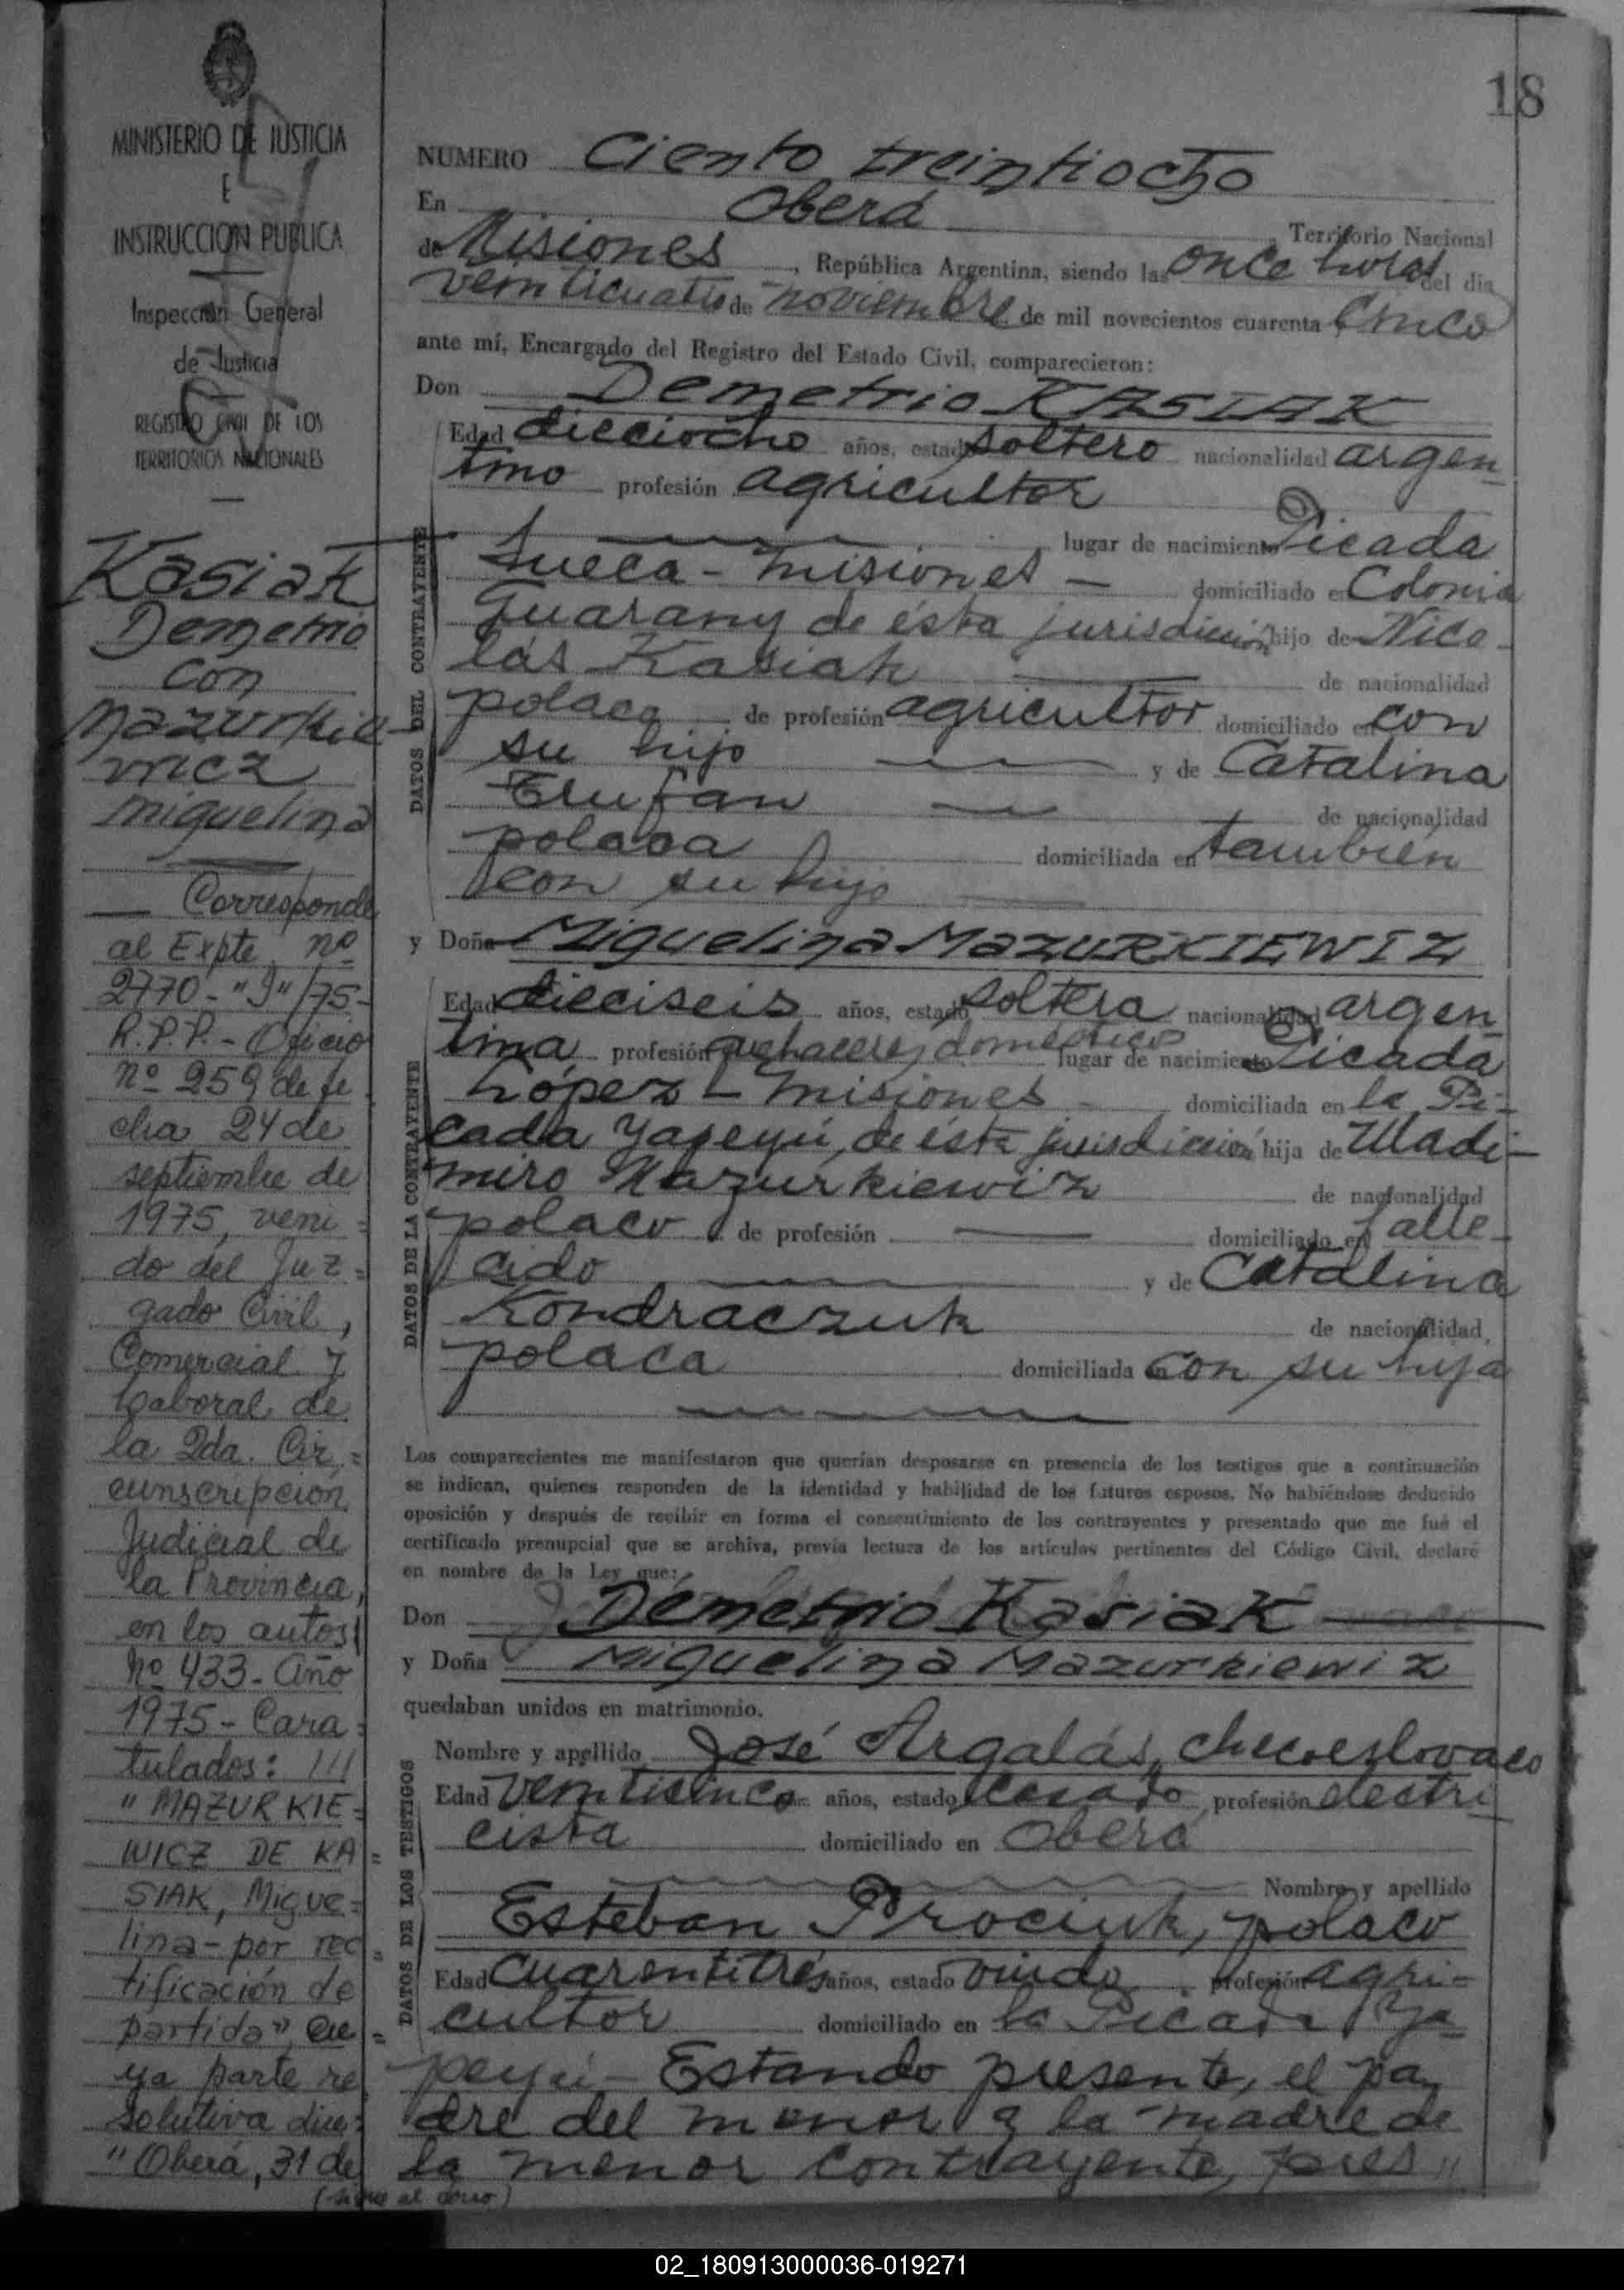 18
MINISTERIO DE JUSTICIA
E
INSTRUCCION PUBLICA
Inspección General
de Justicia
REGISTRO CIVIL DE LOS
TERRITORIOS NACIONALES
Kasiak
Demetrio
con
Mazurkie
wicz
Miguelina
Corresponde
al Expte. nº
2770-"J"/75-
R.P.P. - Oficio
nº 259 de fe
cha 24 de
septiembre de
1975, veni=
do del Juz=
gado Civil,
Comercial y
Laboral de
la 2da. Cir=
cunscripción
Judicial de
la Provincia,
en los autos
nº 433 - Año
1975 - Cara=
tulados: ///
"MAZURKIE=
WICZ DE KA=
SIAK, Migue=
lina - por rec=
tificación de
partida", cu=
ya parte re
solutiva dice:
"Oberá, 31 de
(sigue al dorso)
NUMERO Ciento treintiocho
En Oberá Territorio Nacional
de Misiones, República Argentina, siendo las once horas del día
veinticuatro de noviembre de mil novecientos cuarenta cinco
ante mí, Encargado del Registro del Estado Civil, comparecieron:
Don Demetrio KASIAK
DATOS DEL CONTRAYENTE
Edad dieciocho años, estado soltero nacionalidad argen
tino profesión agricultor
lugar de nacimiento Picada
Sueca - Misiones - domiciliado en Colonia
Guarany de ésta jurisdicción hijo de Nico-
lás Kasiak de nacionalidad
polaco de profesión agricultor domiciliado en con
su hijo y de Catalina
de nacionalidad
polaca domiciliada en también
con su hijo
y Doña Miguelina MAZURKIEWIZ
DATOS DE LA CONTRAYENTE
Edad dieciseis años, estado soltera nacionalidad argen-
tina profesión quehaceres domésticos lugar de nacimiento Picada
López - Misiones domiciliada en la Pi-
cada Yapeyú, de ésta jurisdicción hija de Uladi-
miro Mazurkiewiz de nacionalidad
polaco de profesión domiciliado en falle-
cido y de Catalina
Kondraczuk de nacionalidad
polaca domiciliada en con su hija
Los comparecientes me manifestaron que querían desposarse en presencia de los testigos que a continuación
se indican, quienes responden de la identidad y habilidad de los futuros esposos. No habiéndose deducido
oposición y después de recibir en forma el consentimiento de los contrayentes y presentado que me fué el
certificado prenupcial que se archiva, previa lectura de los artículos pertinentes del Código Civil, declaré
en nombre de la Ley que:
Don Demetrio Kasiak
y Doña Miguelina Mazurkiewiz
quedaban unidos en matrimonio.
DATOS DE LOS TESTIGOS
Nombre y apellido José Argalás, checoeslovaco
Edad veinticinco años, estado casado profesión electri
cista domiciliado en Oberá
Nombre y apellido
Esteban Prociuk, polaco
Edad cuarentitrés años, estado viudo profesión agri-
cultor domiciliado en la Picada Ya-
peyú - Estando presente, el pa
dre del menor y la madre de
la menor contrayente, pres
02_180913000036-019271